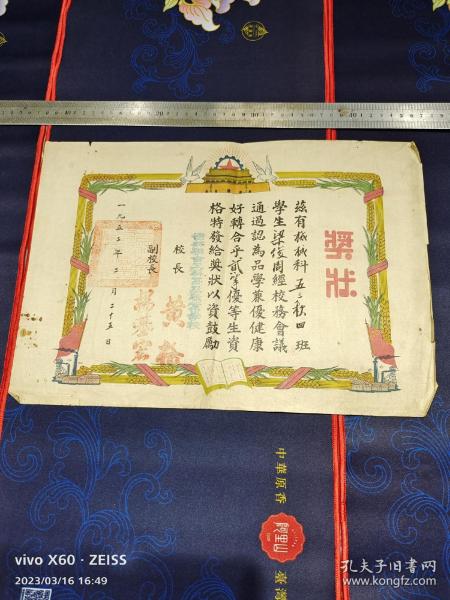 獎狀
茲有機械科五三秋四班
學生梁俊周經校務會議
通過認為品學兼優健康
好轉合乎貳等優等生資
格特發給獎狀以資鼓勵
校長 黃
副校長
一九五三年二月二十五日
中華原香
阿里山
臺灣
vivo X60 · ZEISS
2023/03/16 16:49
孔夫子旧书网
www.kongfz.com